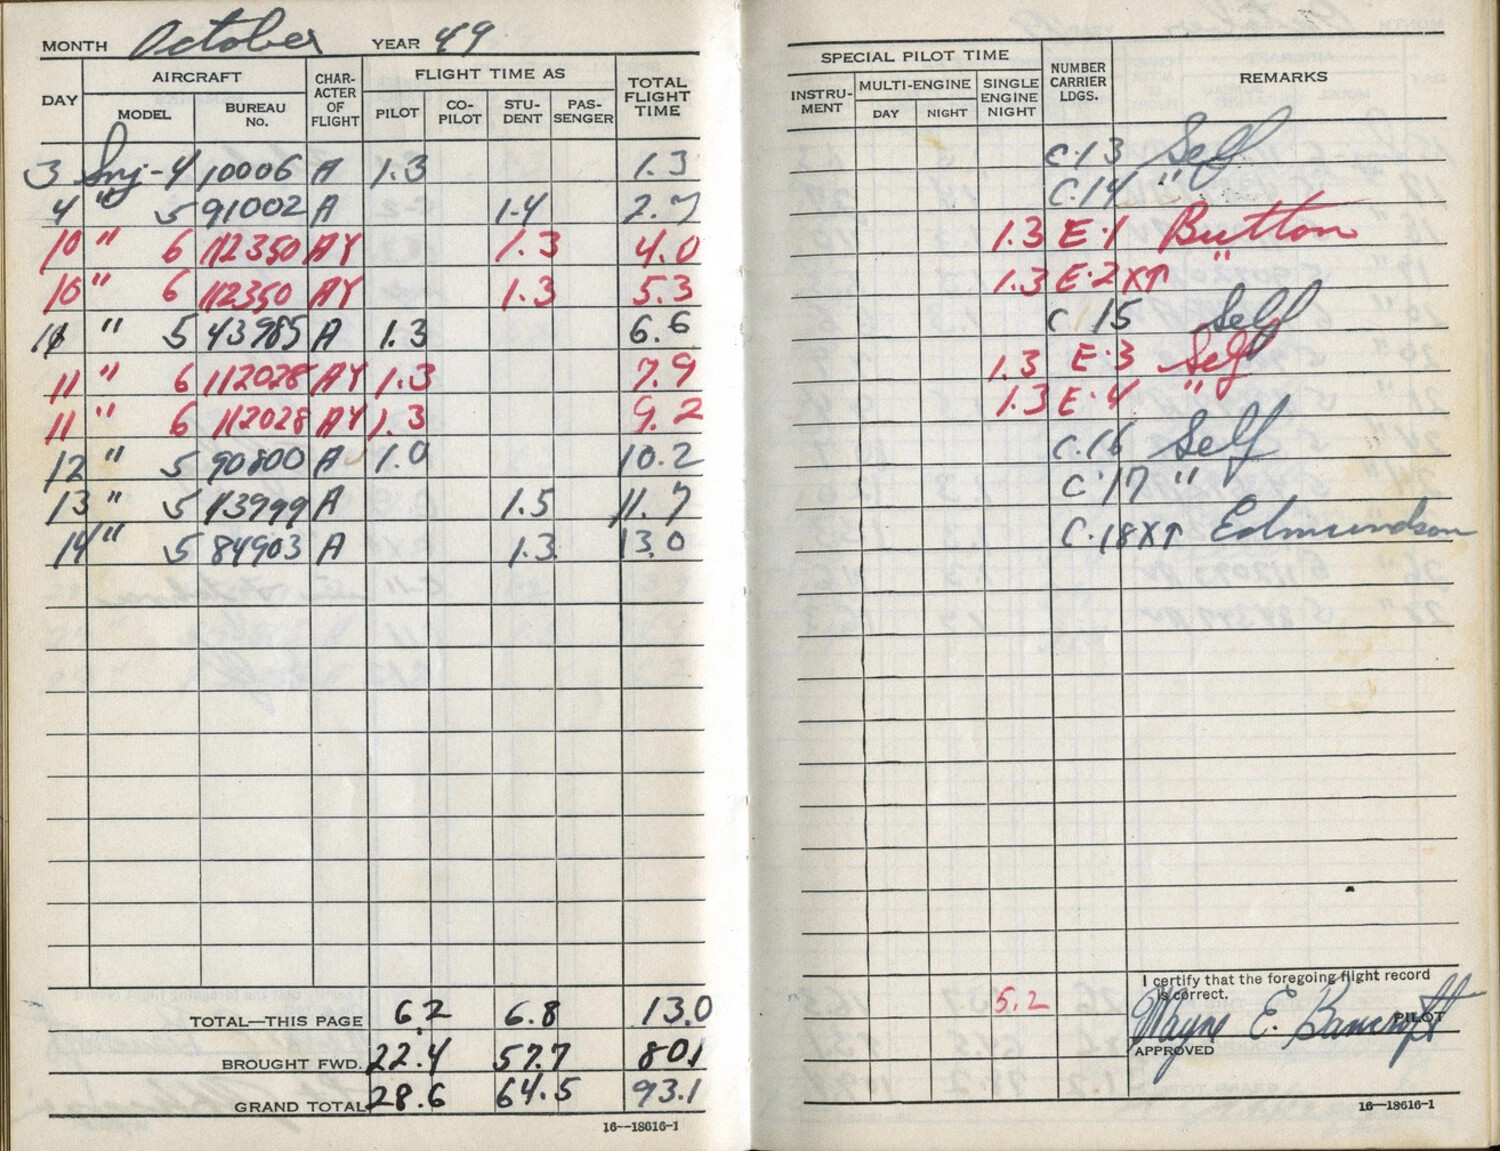 MONTH October YEAR 49
DAY AIRCRAFT CHAR- ACTER OF FLIGHT FLIGHT TIME AS TOTAL FLIGHT TIME
MODEL BUREAU NO. PILOT CO- PILOT STU- DENT PAS- SENGER
3 Snj-4 10006 A 1.3 1.3
4 " 5 91002 A 1.4 2.7
10 " 6 112350 AY 1.3 4.0
10 " 6 112350 AY 1.3 5.3
11 " 5 43985 A 1.3 6.6
11 " 6 112028 AY 1.3 7.9
11 " 6 112028 AY 1.3 9.2
12 " 5 90800 A 1.0 10.2
13 " 5 43999 A 1.5 11.7
14 " 5 84903 A 1.3 13.0
TOTAL—THIS PAGE 6.2 6.8 13.0
BROUGHT FWD. 22.4 57.7 80.1
GRAND TOTAL 28.6 64.5 93.1
16—18616-1
SPECIAL PILOT TIME NUMBER CARRIER LDGS. REMARKS
INSTRU- MENT MULTI-ENGINE SINGLE ENGINE NIGHT
DAY NIGHT
C.13 Self
C.14 "
1.3 E.1 Button
1.3 E.2X↑ "
C 15 Self
1.3 E.3 Self
1.3 E.4 "
C.16 Self
C.17 "
C.18X↑ Edmundson
5.2
I certify that the foregoing flight record
is correct.
Wayne E. Bancroft PILOT
APPROVED
16—18616-1